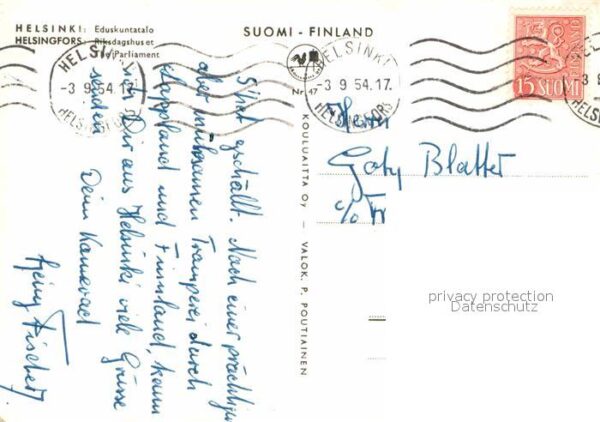 HELSINKI: Eduskuntatalo
HELSINGFORS: Riksdagshuset
The Parliament
SUOMI - FINLAND
HELSINKI
-3 9.54.17.
HELSINGFORS
HELSINKI
-3 9.54.17.
HELSINGFORS
15 SUOMI
Nr 47
KOULUAITTA Oy — VALOK. P. POUTIAINEN
Nach einer prächtigen
aber mühsamen Tramperei durch
Lappland und Finnland, kann
ich Dir aus Helsinki viele Grüsse
senden
Dein Kamerad
Heinz Fischer
Herrn
Gaty Blatter
c/o Fr
privacy protection
Datenschutz